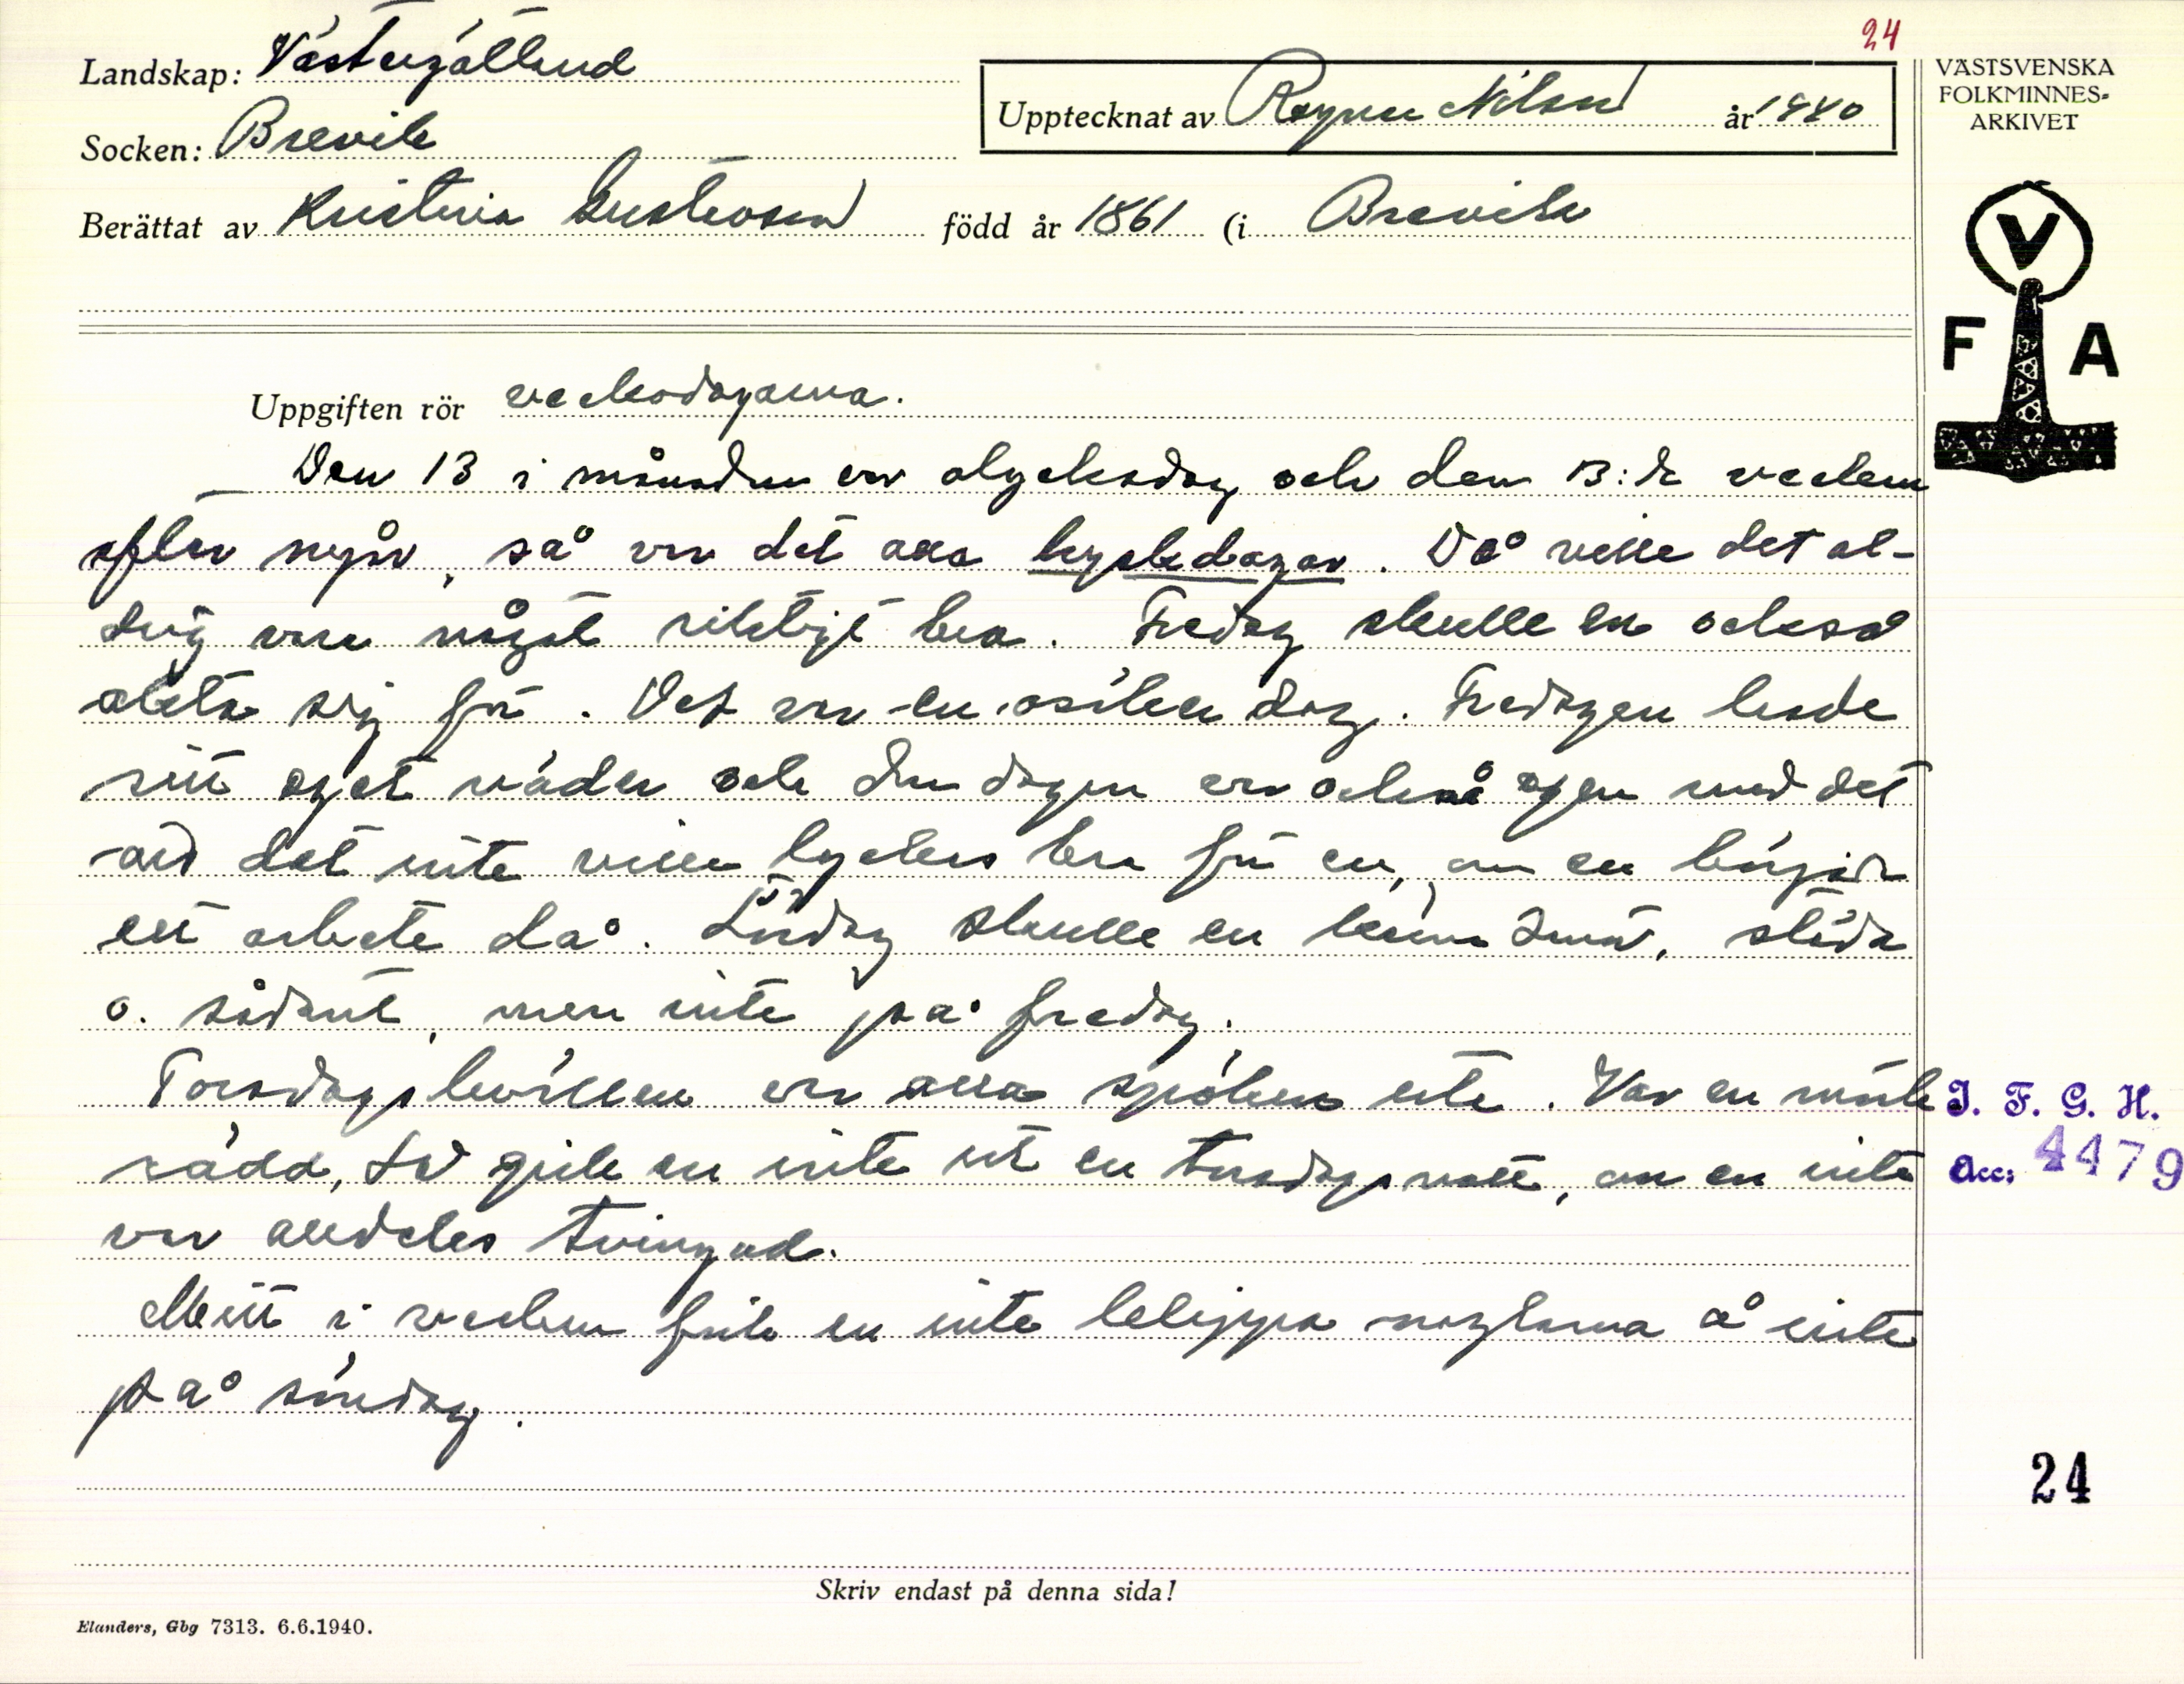 24
Landskap: Västergötland
Upptecknat av Ragnar Nilsson år 1940
VÄSTSVENSKA
FOLKMINNES-
ARKIVET
Socken: Brevik
Berättat av Kristina Gustavsson född år 1861 (i Brevik
V
F A
Uppgiften rör veckodagarna.
Den 13 i månaden var olycksdag och den 13:de veckan
efter nyår, så var det alla dagar. Då ville det al-
drig vara något riktigt bra. Fredag skulle en också
akta sig för. Det var en osäker dag. Fredagen hade
sitt eget väder och den dagen var också egen med det
att det inte ville lyckas bra för en, om en började
ett arbete då. Lördag skulle en städa
o. sådant, men inte på fredag.
Torsdagskvällen var alla spöken ute. Var en mörk
rädd, så gick en inte ut en torsdagsnatt, om en inte
var alldeles tvingad.
Mitt i veckan fick en inte klippa naglarna å inte
på söndag.
I. F. G. H.
Acc: 4479
24
Skriv endast på denna sida!
Elanders, Gbg 7313. 6.6.1940.